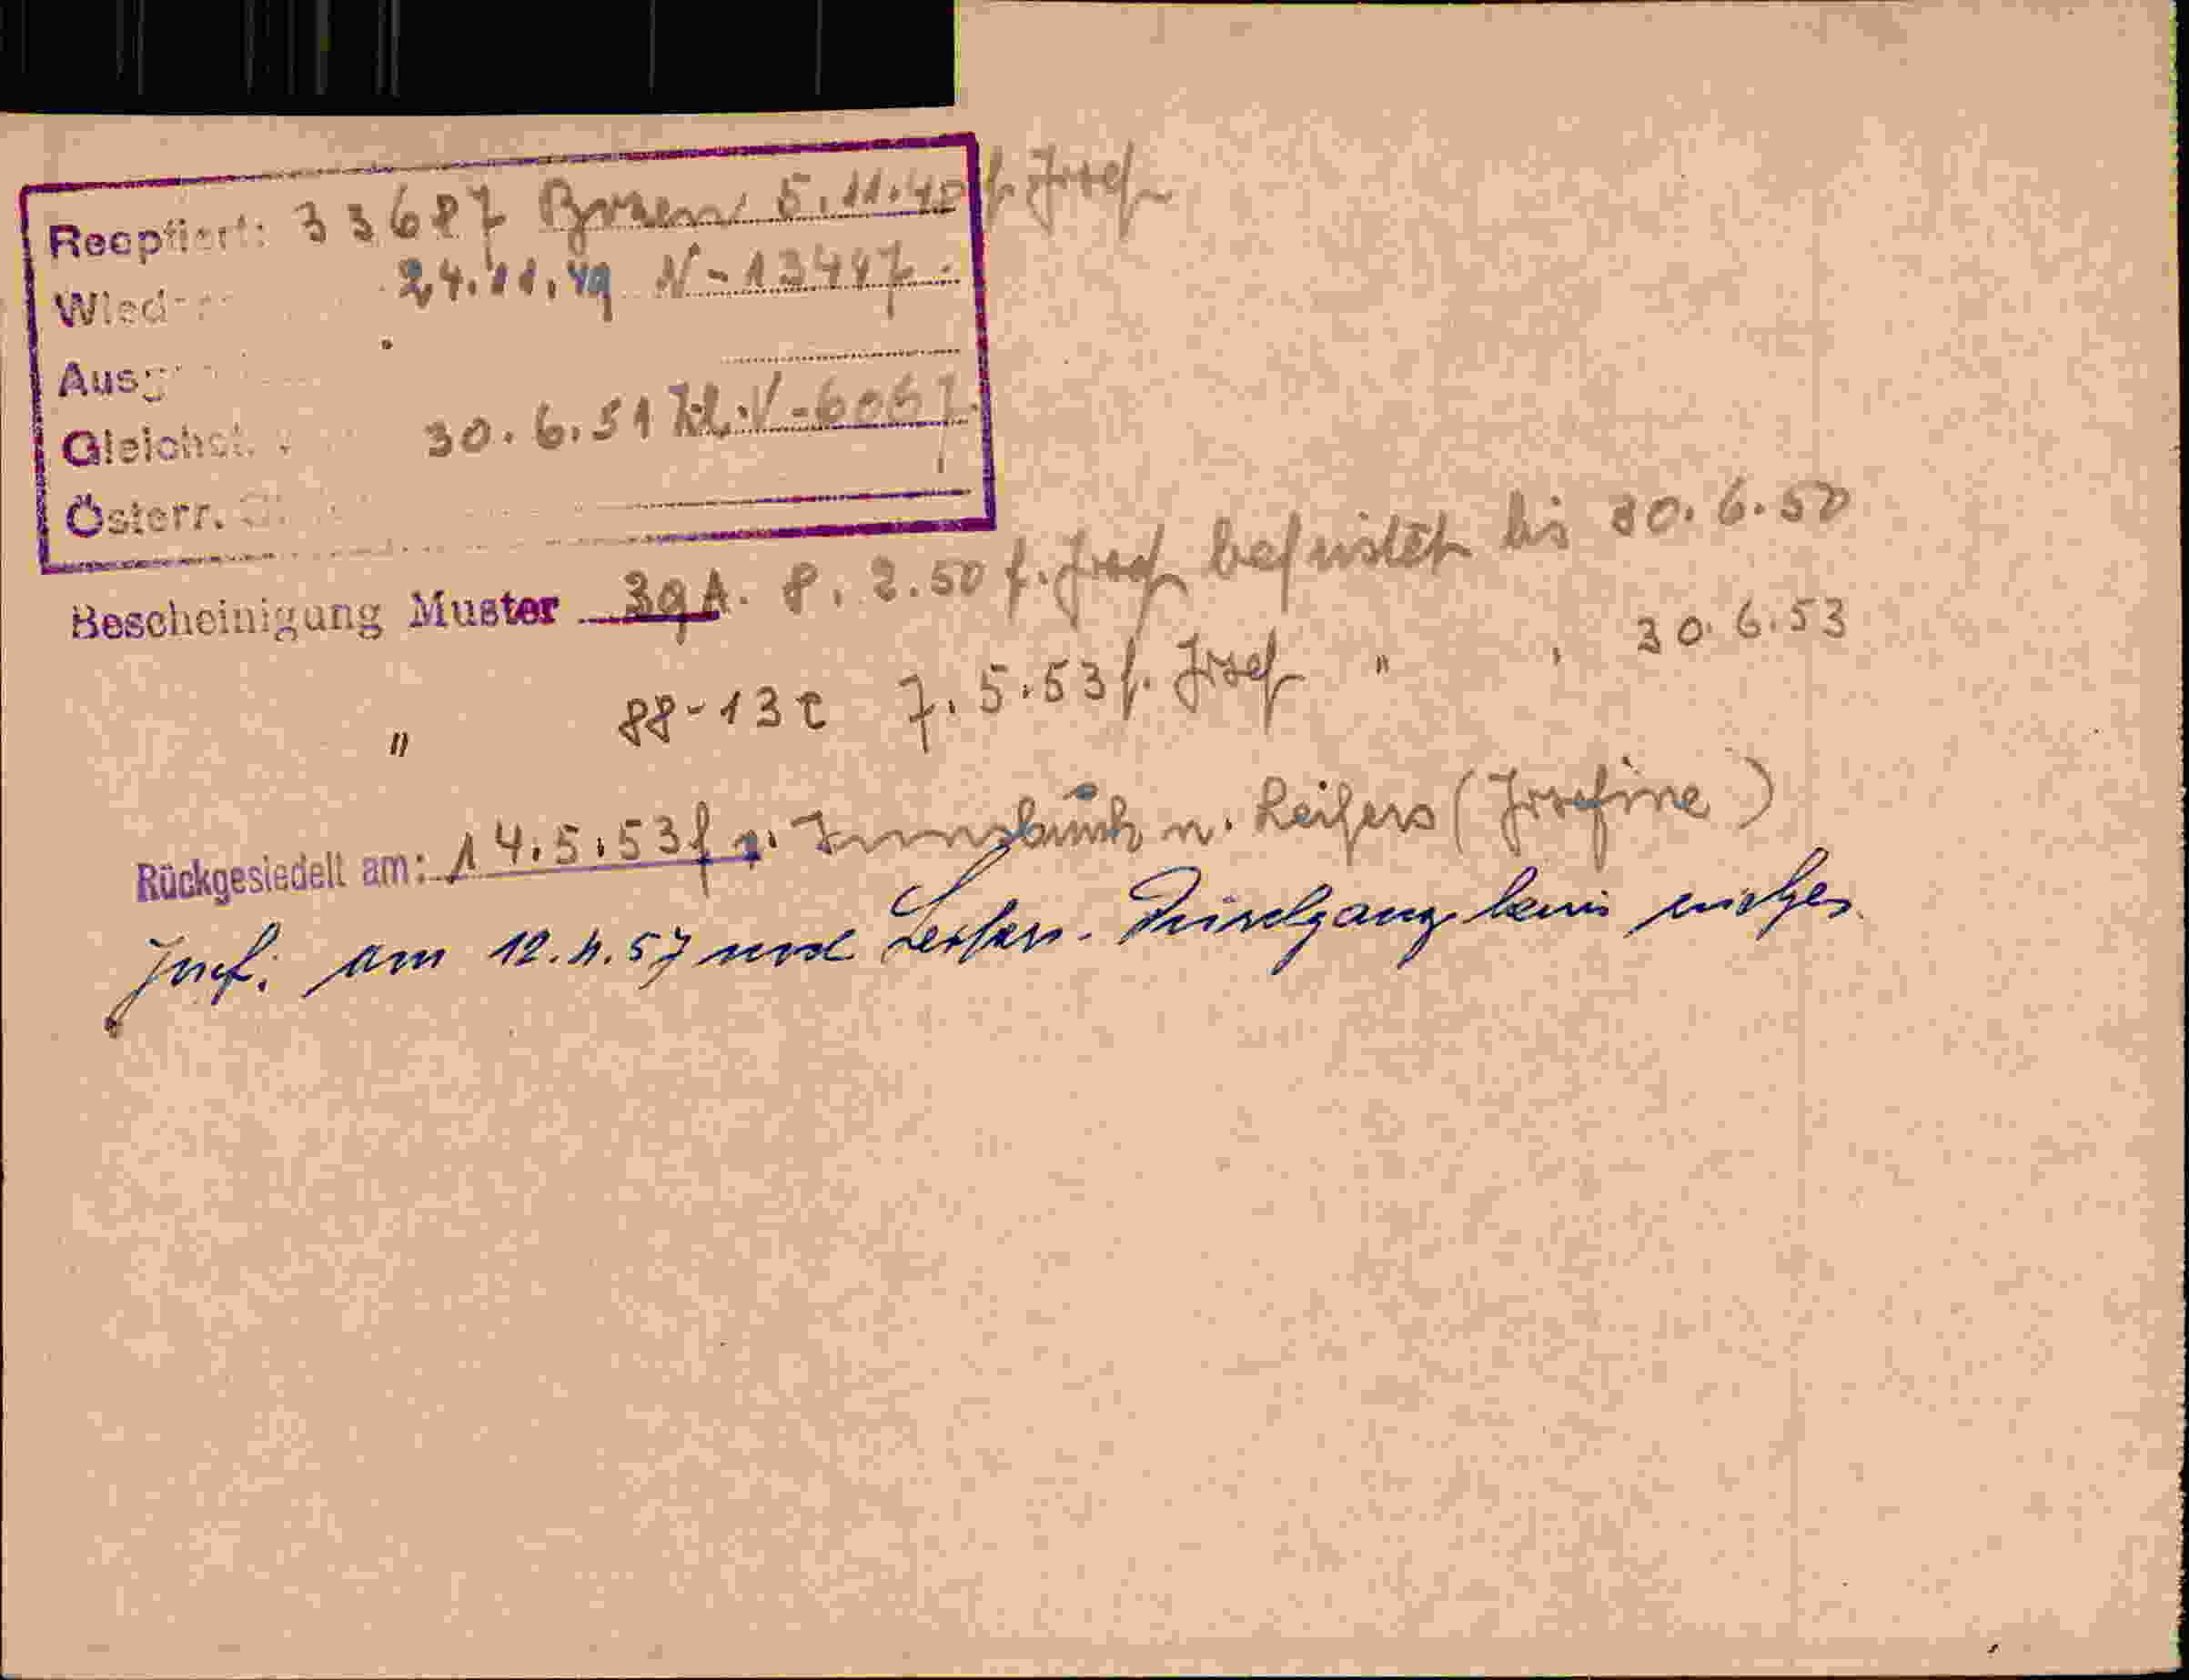 Reoptiert: 33687 Bozen 5.11.48 f. Josef
Wied 24.11.49 N-13447.
Ausg
Gleichst. 30.6.51 Zl. V-6067
Österr.
Bescheinigung Muster 39A. 8.2.50 f. Josef befristet bis 30.6.50
" 88-13c 7.5.53 f. Josef " 30.6.53
Rückgesiedelt am: 14.5.53 f v. Innsbruck n. Leifers (Josefine)
Josef: am 12.4.57 nach Leifers.